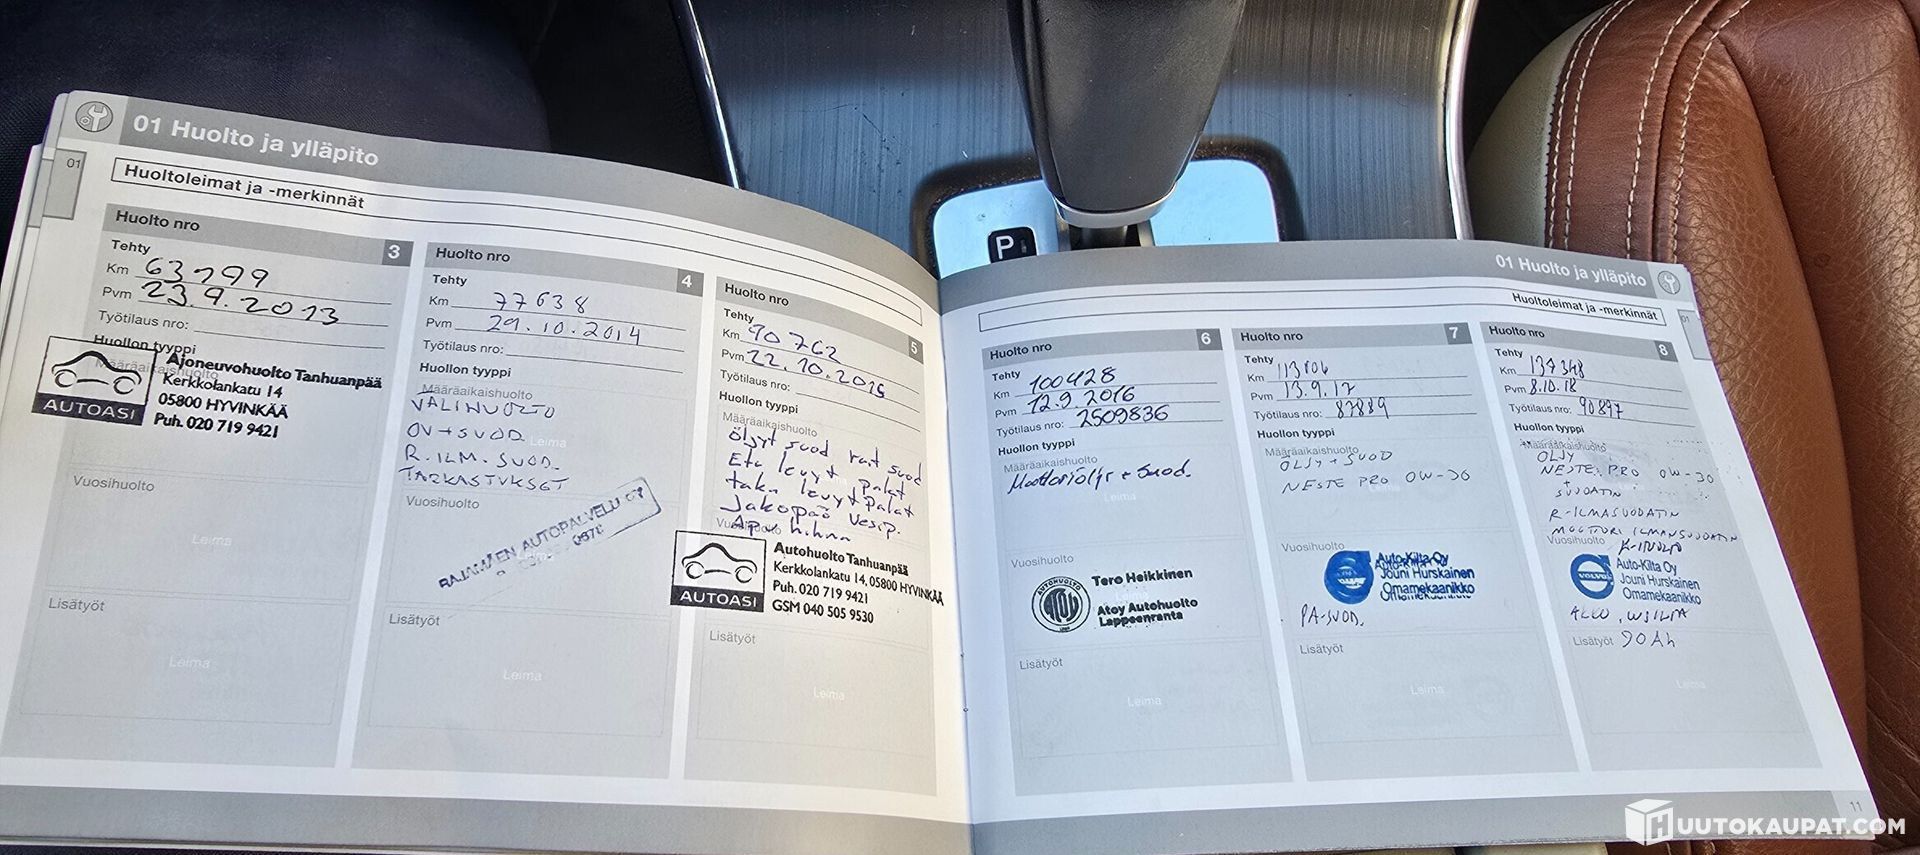 01 Huolto ja ylläpito
01
Huoltoleimat ja -merkinnät
Huolto nro
3
Tehty
Km 63199
Pvm 23.9.2013
Työtilaus nro:
Huollon tyyppi
Määräaikaishuolto
AUTOASI
Ajoneuvohuolto Tanhuanpää
Kerkkolankatu 14
05800 HYVINKÄÄ
Puh. 020 719 9421
Vuosihuolto
Leima
Lisätyöt
Leima
Huolto nro
4
Tehty
Km 77638
Pvm 29.10.2014
Työtilaus nro:
Huollon tyyppi
Määräaikaishuolto
VÄLIHUOLTO
ÖV+SUOD.
Leima
R.ILM.SUOD.
TARKASTUKSET
Vuosihuolto
RAJAMÄEN AUTOPALVELU
Lisätyöt
Leima
Huolto nro
5
Tehty
Km 90762
Pvm 22.10.2015
Työtilaus nro:
Huollon tyyppi
Määräaikaishuolto
öljyt suod rait suod
Etu levyt palat
taka levyt palat
Jakopää Vesip.
Vuosihuolto
Apu hihna
AUTOASI
Autohuolto Tanhuanpää
Kerkkolankatu 14, 05800 HYVINKÄÄ
Puh. 020 719 9421
GSM 040 505 9530
Lisätyöt
Leima
P
01 Huolto ja ylläpito
01
Huoltoleimat ja -merkinnät
Huolto nro
6
Tehty
Km 100428
Pvm 12.9.2016
Työtilaus nro: 2509836
Huollon tyyppi
Määräaikaishuolto
Moottoriöljy + Suod.
Leima
Vuosihuolto
AUTOHUOLTO
ATOY
Tero Heikkinen
Leima
Atoy Autohuolto
Lappeenranta
Lisätyöt
Leima
Huolto nro
7
Tehty
Km 113806
Pvm 13.9.17
Työtilaus nro: 87889
Huollon tyyppi
Määräaikaishuolto
ÖLJY + SUOD
NESTE PRO 0W-30
Vuosihuolto
VOLVO
Auto-Kilta Oy
Jouni Hurskainen
Omamekaanikko
PA-SUOD.
Lisätyöt
Leima
Huolto nro
8
Tehty
Km 137348
Pvm 8.10.18
Työtilaus nro: 90897
Huollon tyyppi
Määräaikaishuolto
ÖLJY
NESTE PRO 0W-30
+
SUODATIN
R-ILMASUODATIN
MOOTTORI ILMANSUODATIN
Vuosihuolto
VOLVO
Auto-Kilta Oy
Jouni Hurskainen
Omamekaanikko
Lisätyöt 90Ah
Leima
11
HUUTOKAUPAT.COM